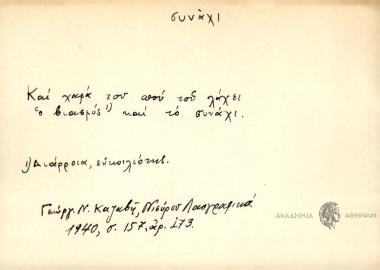 συνάχι
Καί χαρά του απού τού λάχει
ὁ βιασμός¹⁾ καί τό συνάχι.
1) Διάρροια, εὐκοιλιότης.
Γεώργ. Ν. Καζαβῆ, Νισύρου Λαογραφικά
1940, σ. 157, ἀρ. 273.
ΑΚΑΔΗΜΙΑ ΑΘΗΝΩΝ